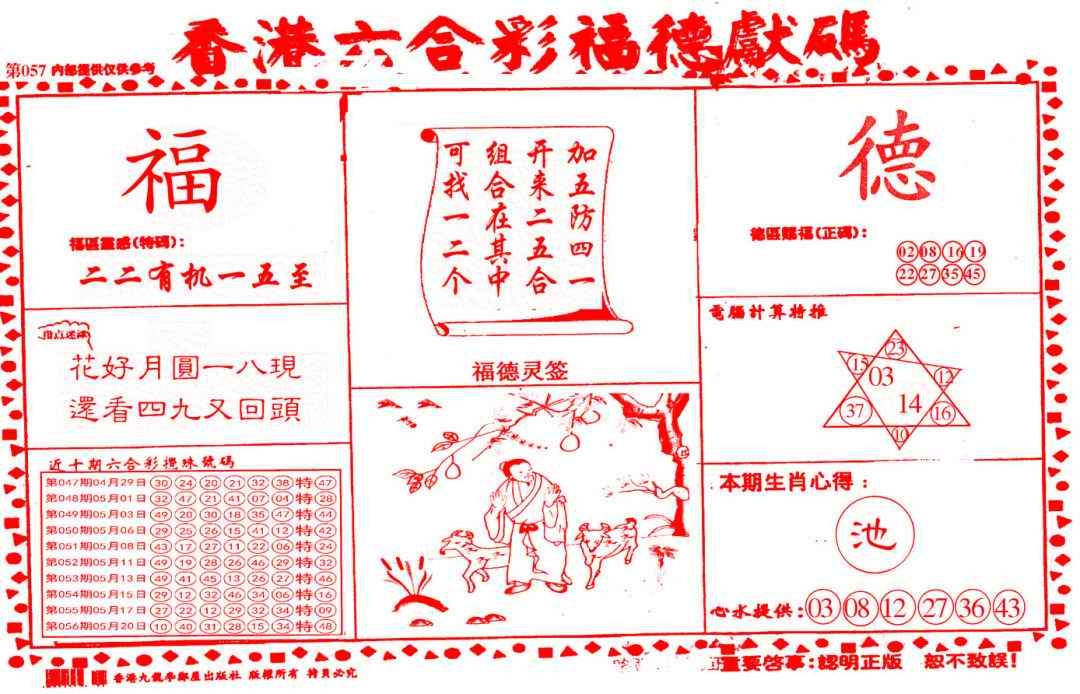 香港六合彩福德獻碼
第057 内部提供仅供参考
福
福區靈感(特碼):
二二有机一五至
指点迷津
花好月圓一八現
還看四九又回頭
近十期六合彩攪珠號碼
第047期04月29日 30 24 20 21 32 38 特 47
第048期05月01日 32 47 21 41 07 04 特 28
第049期05月03日 49 20 30 18 35 47 特 44
第050期05月06日 29 25 26 15 41 12 特 42
第051期05月08日 43 17 27 11 22 06 特 24
第052期05月11日 49 19 28 26 46 29 特 32
第053期05月13日 49 41 45 13 26 27 特 46
第054期05月15日 29 12 32 46 34 06 特 16
第055期05月17日 27 22 12 29 32 34 特 09
第056期05月20日 10 40 31 28 15 34 特 48
加五防四一
开来二五合
组合在其中
可找一二个
福德灵签
德
德區賜福(正碼):
02 08 16 19
22 27 35 45
電腦計算特推
23
15 03 12
37 14 16
10
本期生肖心得:
池
心水提供: 03 08 12 27 36 43
重要啓事:認明正版 恕不致誤!
香港九龍學鄰屋出版社 版權所有 特員必究